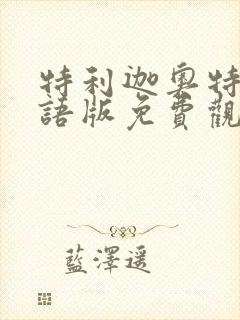 特利迦奧特
語版免費觀
藍澤遥